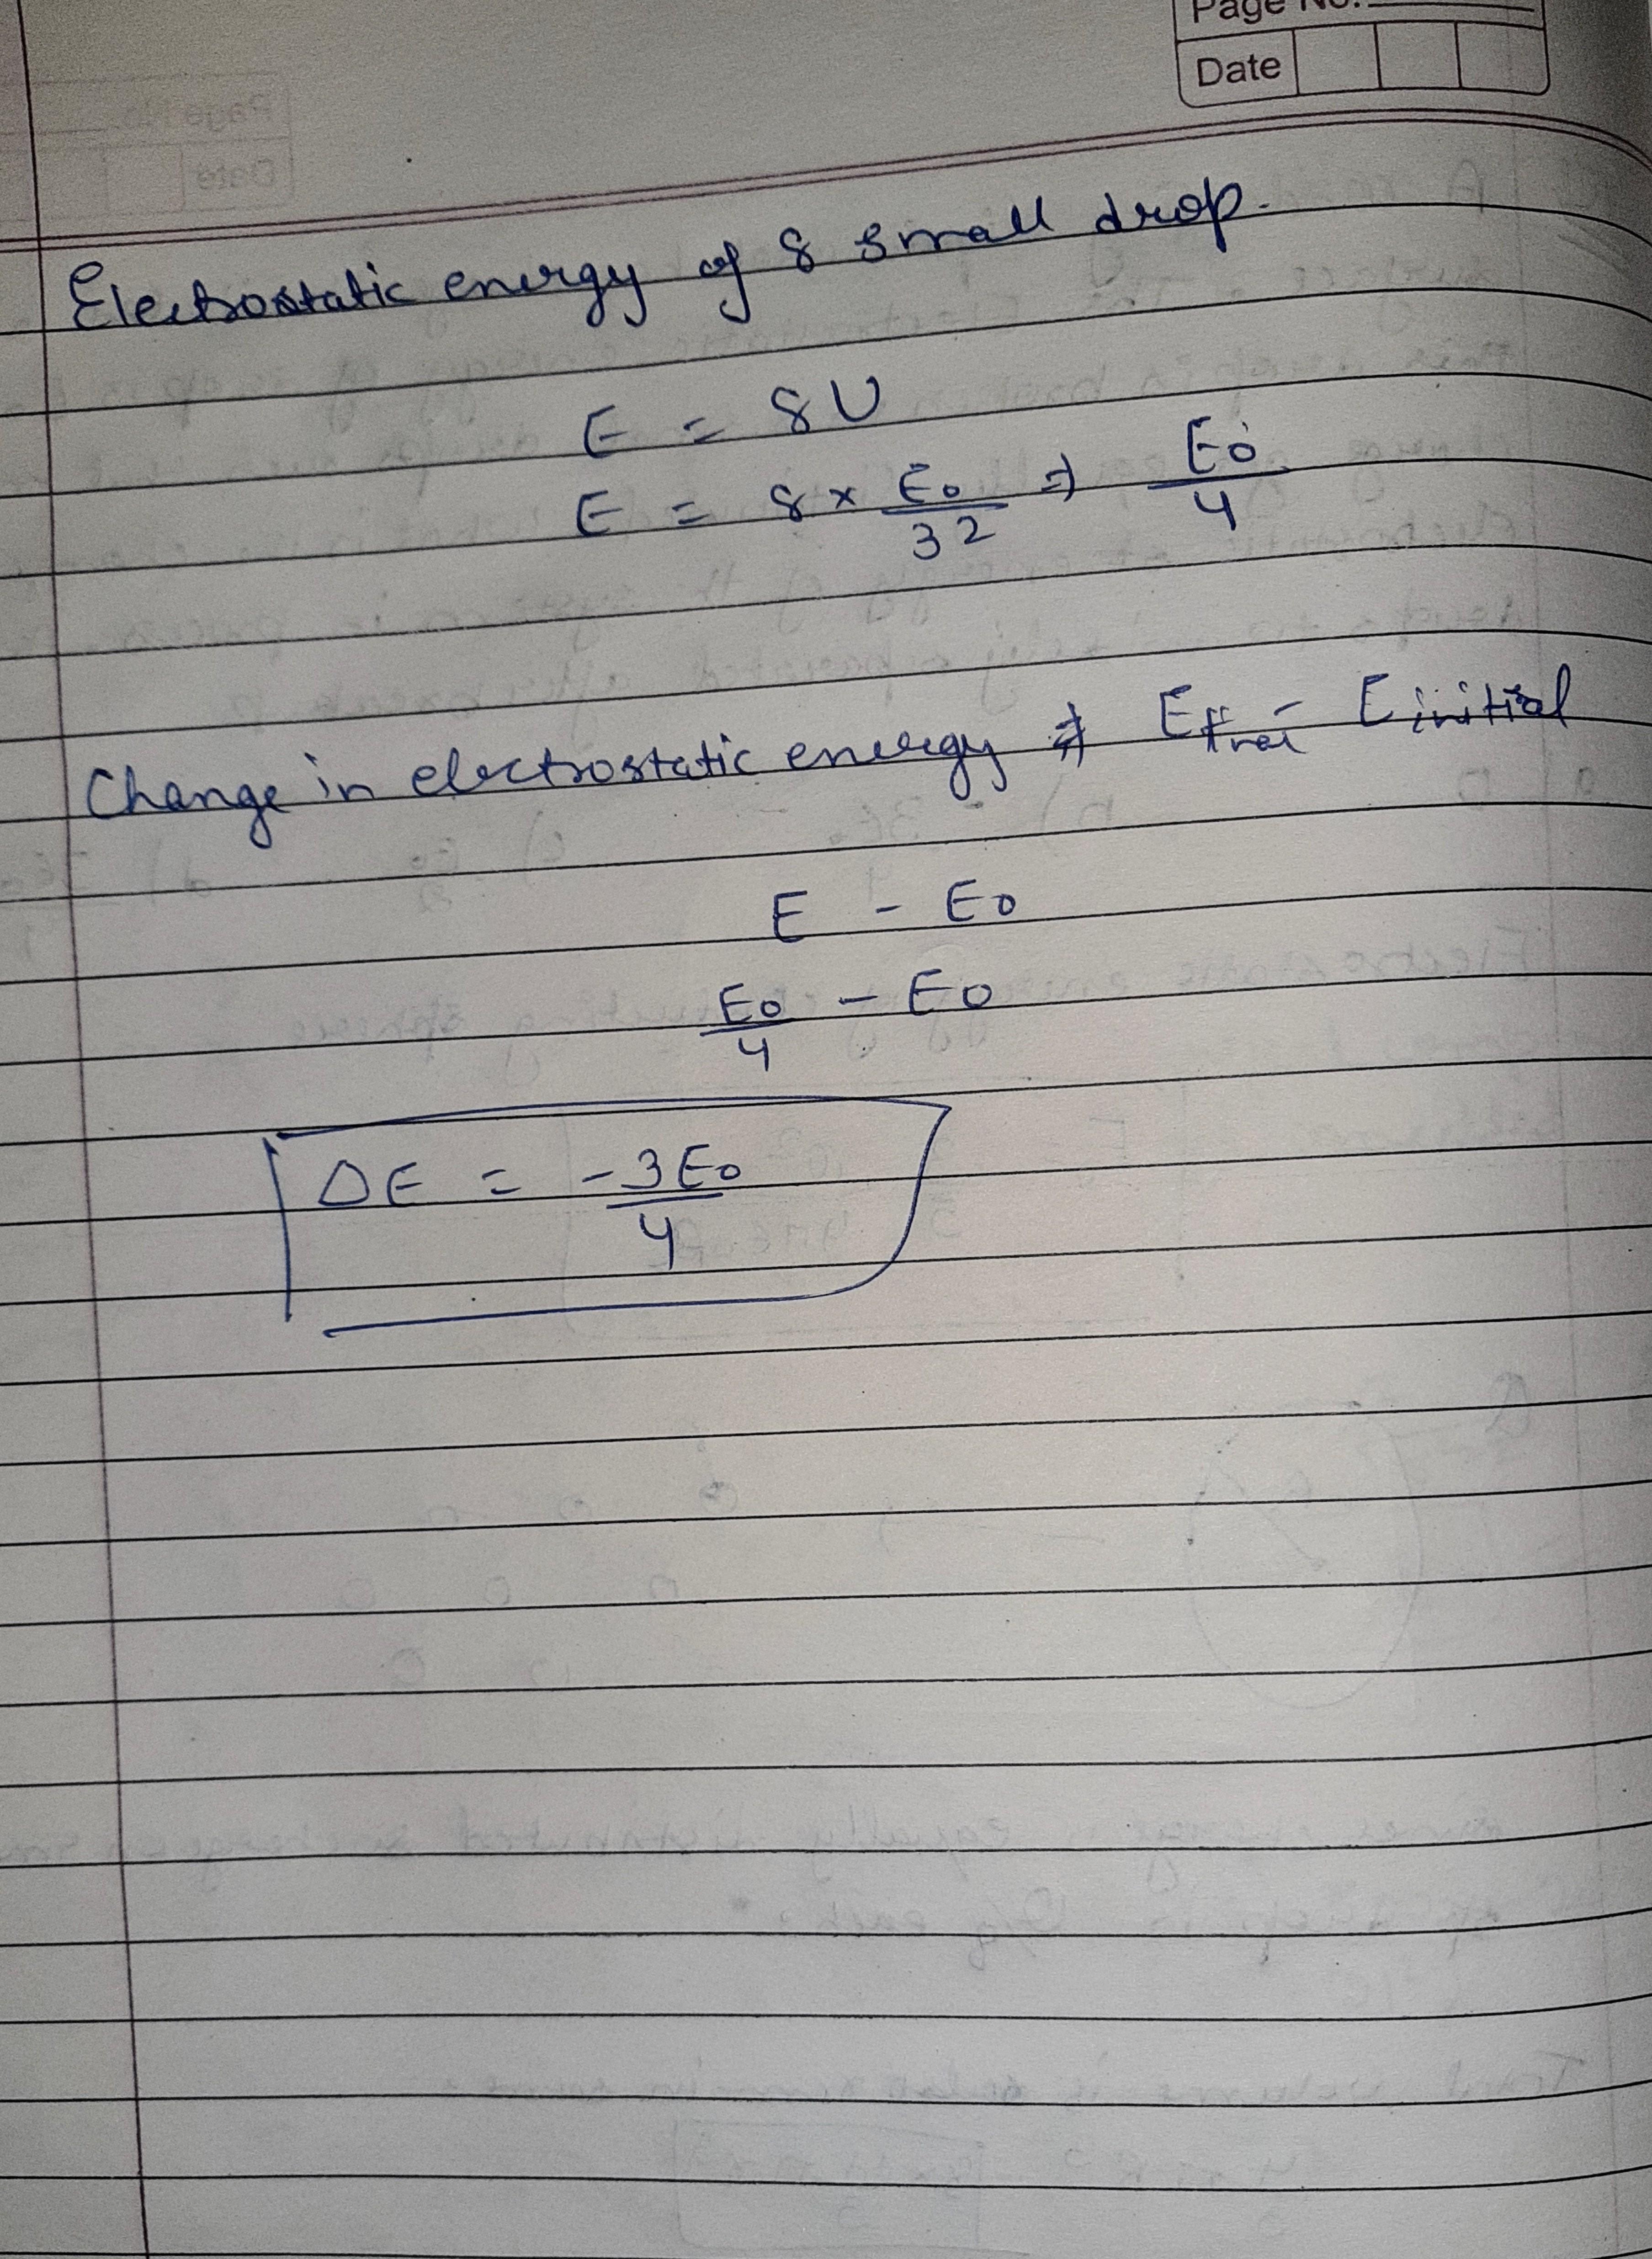 Page No.
Date
Electrostatic energy of 8 small drop.
E = 8U
E = 8 × E₀/32 ⇒ E₀/4
Change in electrostatic energy ⇒ E - E initial
E - E₀
E₀/4 - E₀
ΔE = -3E₀/4